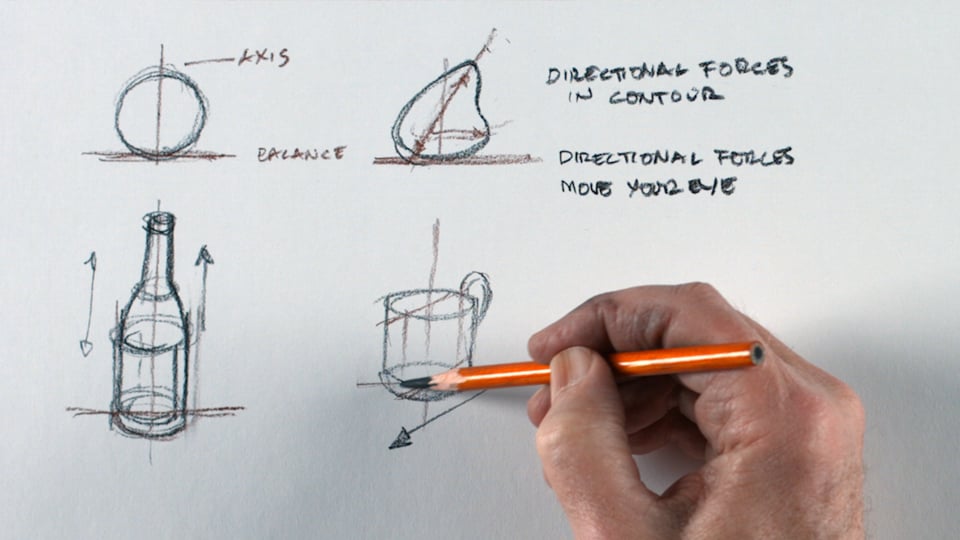 AXIS
BALANCE
DIRECTIONAL FORCES
IN CONTOUR
DIRECTIONAL FORCES
MOVE YOUR EYE